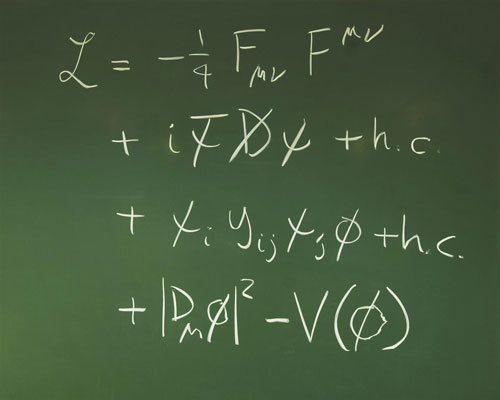 ℒ = -1/4 F_μν F^μν
+ i ψ̄ D̸ ψ + h.c.
+ χ_i y_ij χ_j φ + h.c.
+ |D_μ φ|² - V(φ)